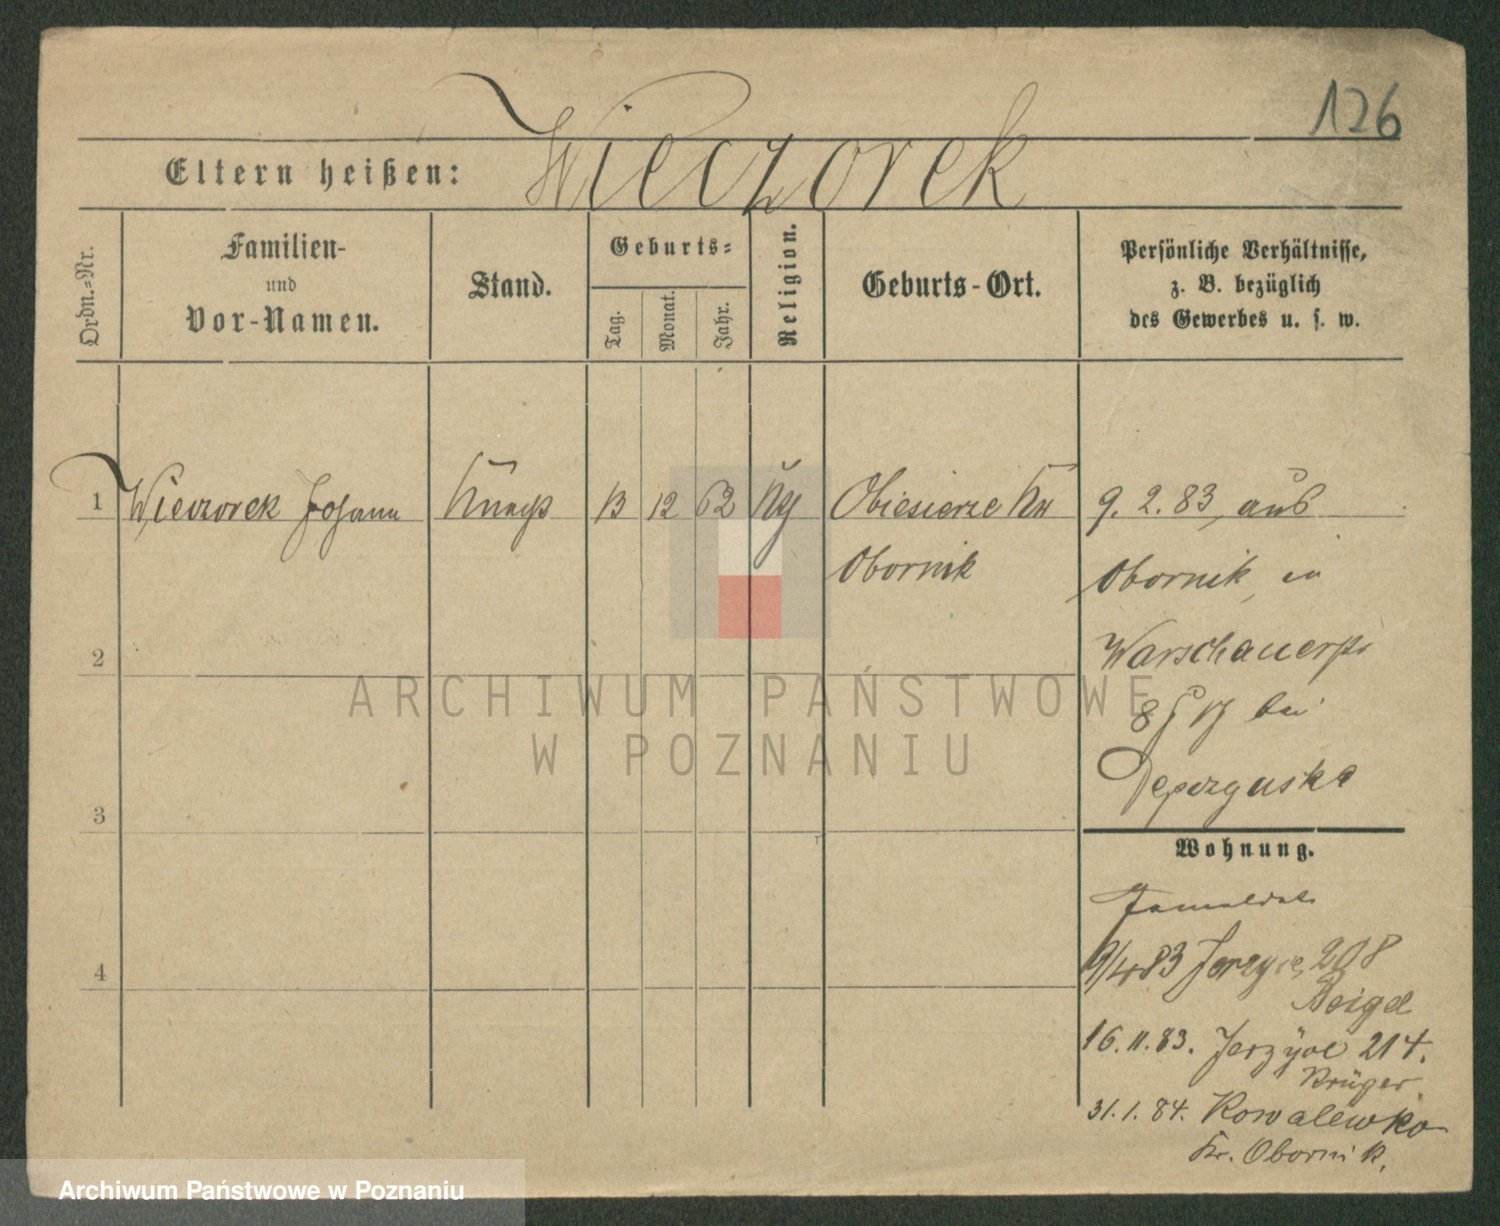 126
Eltern heißen: Wieczorek
Ordn.-Nr.
Familien-
und
Vor-Namen.
Stand.
Geburts-
Tag.
Monat.
Jahr.
Religion.
Geburts-Ort.
Persönliche Verhältnisse,
z. B. bezüglich
des Gewerbes u. s. w.
1 Wieczorek Johann 13 12 62 Obiesierze
Obornik
9. 2. 83, aus
Obornik, in
Warschauerstr
8 bei
2
3
4
Wohnung.
9/4 83 Jerzyce, 208
Beigel
16. 11. 83. Jerzyce 214.
Krüger.
31. 1. 84. Kowalewko
Kr. Obornik.
ARCHIWUM PAŃSTWOWE
W POZNANIU
Archiwum Państwowe w Poznaniu